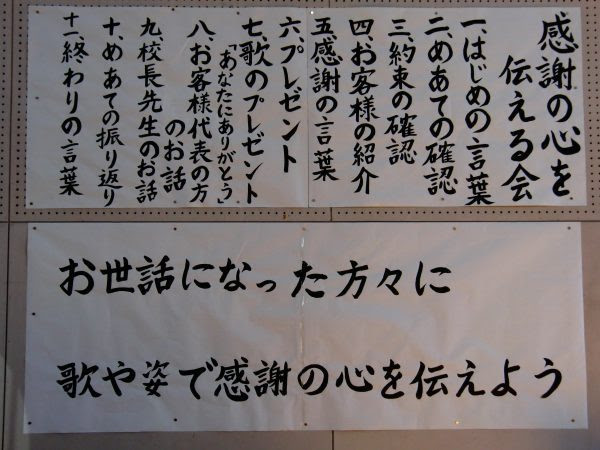 感謝の心を
伝える会
一、はじめの言葉
二、めあての確認
三、約束の確認
四、お客様の紹介
五、感謝の言葉
六、プレゼント
七、歌のプレゼント
「あなたにありがとう」
八、お客様代表の方
のお話
九、校長先生のお話
十、めあての振り返り
十一、終わりの言葉
お世話になった方々に
歌や姿で感謝の心を伝えよう